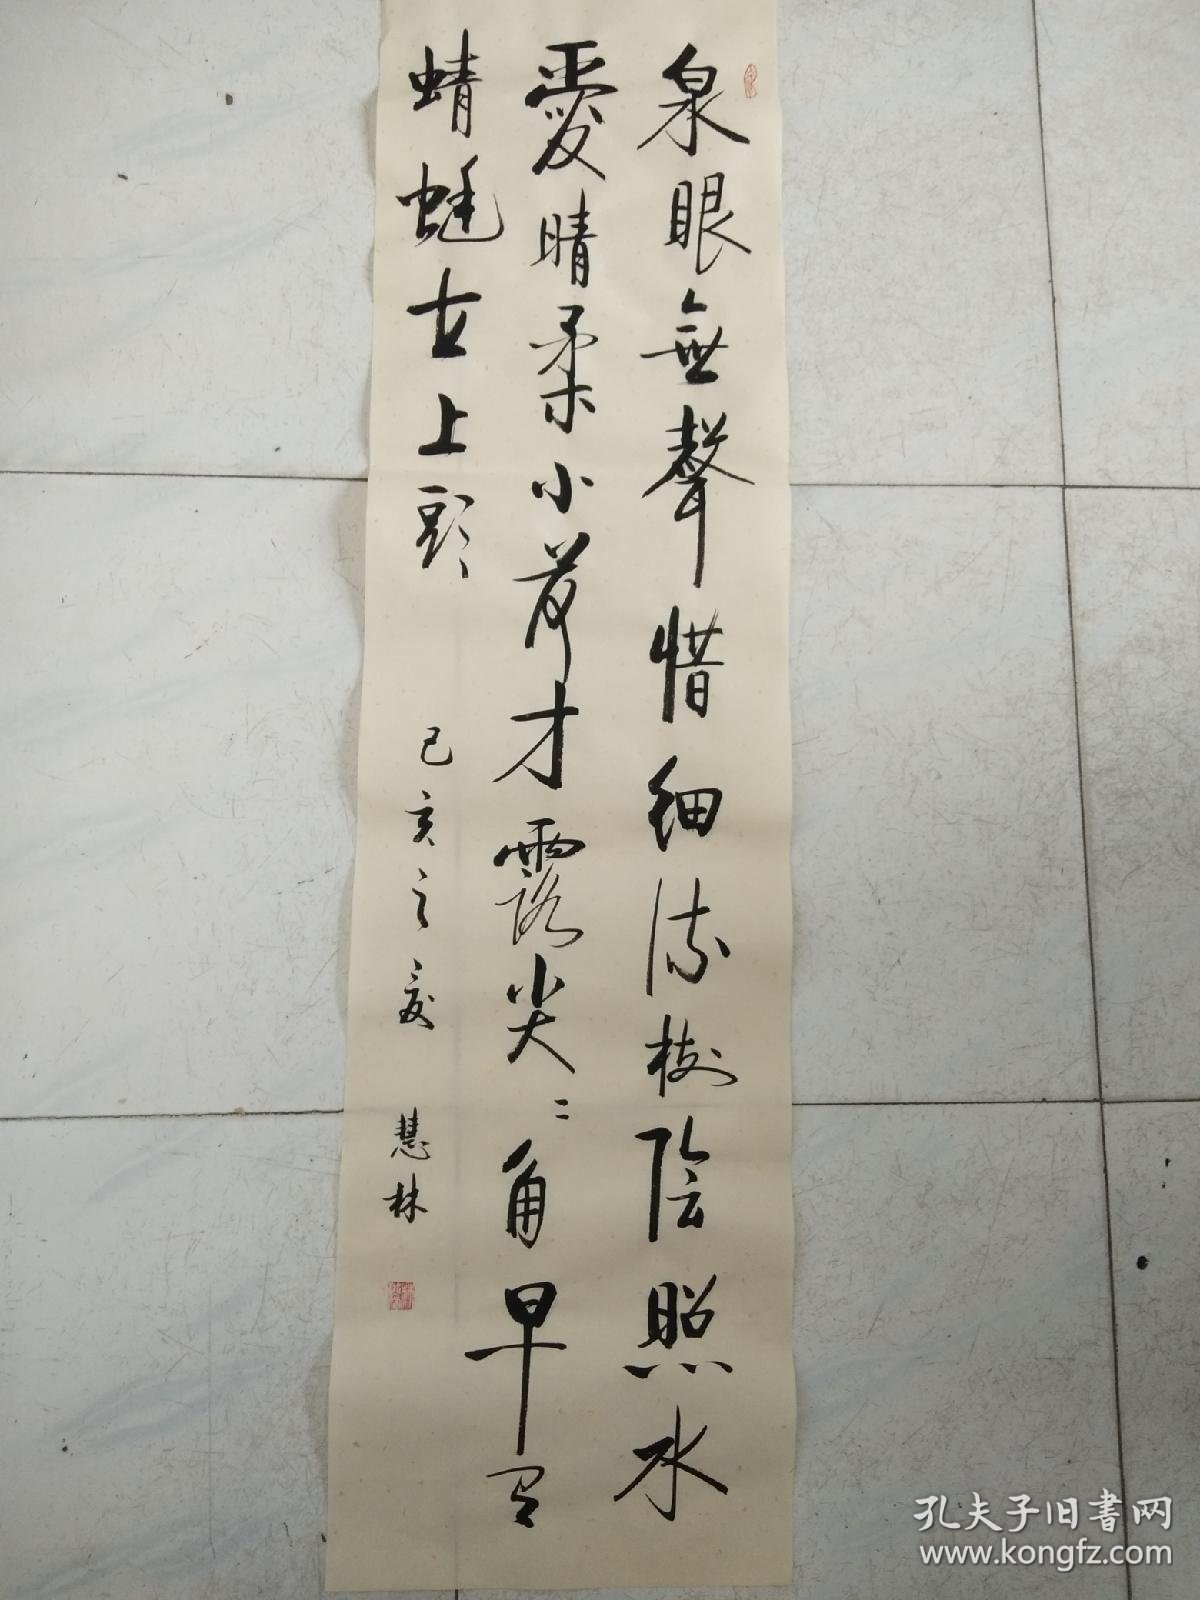 泉眼無聲惜細流樹陰照水
愛晴柔小荷才露尖〻角早有
蜻蜓立上頭
己亥之夏 慧林
孔夫子旧書网
www.kongfz.com